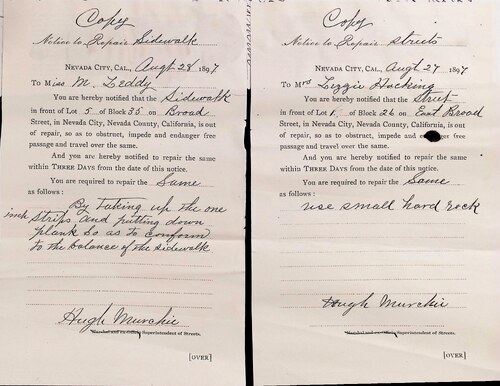 Copy
Notice to Repair Sidewalk
NEVADA CITY, CAL., Augt 28 1897
To Miss M. Leddy
You are hereby notified that the Sidewalk
in front of Lot 5 of Block 35 on Broad
Street, in Nevada City, Nevada County, California, is out
of repair, so as to obstruct, impede and endanger free
passage and travel over the same.
And you are hereby notified to repair the same
within THREE DAYS from the date of this notice.
You are required to repair the Same
as follows:
By taking up the one
inch strips and putting down
plank so as to conform
to the balance of the sidewalk
Hugh Murchie
Marshal and ex-Officio Superintendent of Streets.
[OVER]
Copy
Notice to Repair streets
NEVADA CITY, CAL., Augt 27 1897
To Mrs Lizzie Hocking
You are hereby notified that the Street
in front of Lot 1. of Block 26 on East Broad
Street, in Nevada City, Nevada County, California, is out
of repair, so as to obstruct, impede and endanger free
passage and travel over the same.
And you are hereby notified to repair the same
within THREE DAYS from the date of this notice.
You are required to repair the Same
as follows:
use small hard rock
Hugh Murchie
Marshal and ex-Officio Superintendent of Streets.
[OVER]